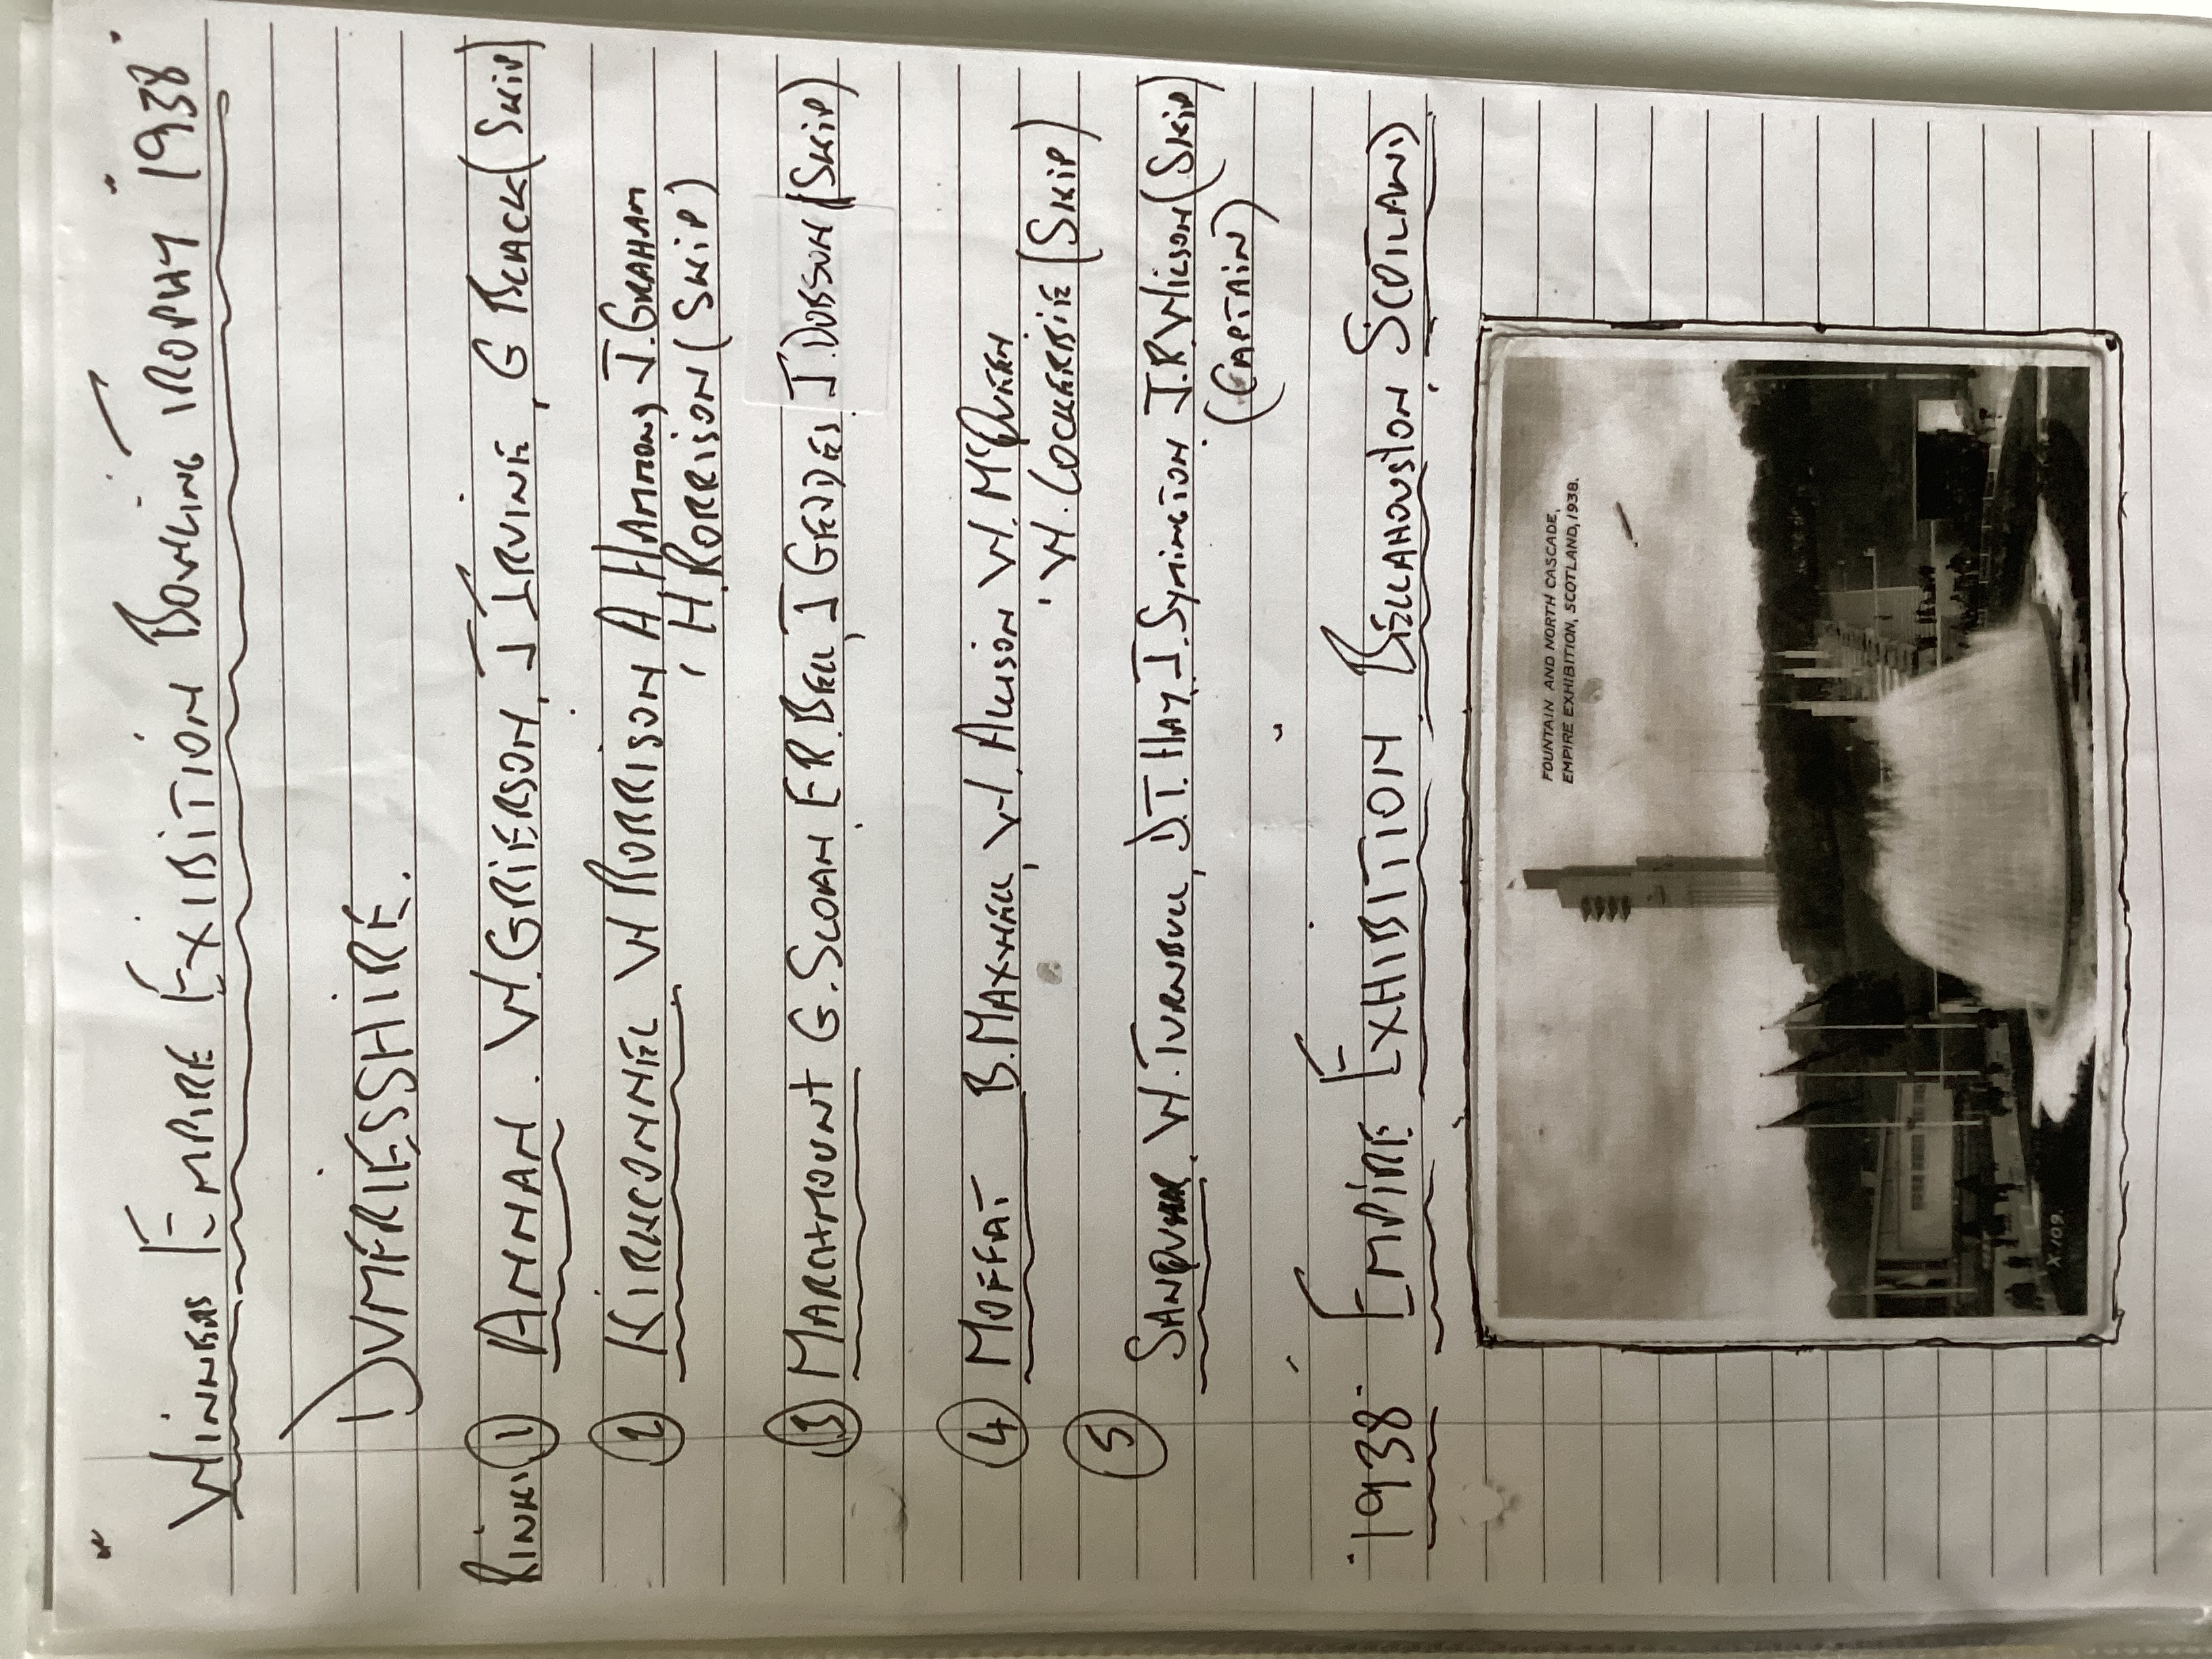 "Winners Empire Exibition Bowling Trophy 1938"
Dumfriesshire.
Rinks ① Annan. W. Grierson, J Irvine, G Black (Skip)
② Kirkconnel W Morrison A Hammond J. Graham
H. Morrison (Skip)
③ Marchmount G. Sloan E R. Bell, J Geddes. J. Dobson (Skip)
④ Moffat B. Maxwell, W. Allison W. McQueen
W. Lockerbie (Skip)
⑤ Sanquhar. W. Turnbull, D.T. Hay, J. Symington J.R Wilson (Skip)
(Captain)
'1938' Empire Exhibition Bellahouston Scotland
FOUNTAIN AND NORTH CASCADE,
EMPIRE EXHIBITION, SCOTLAND, 1938.
X.109.